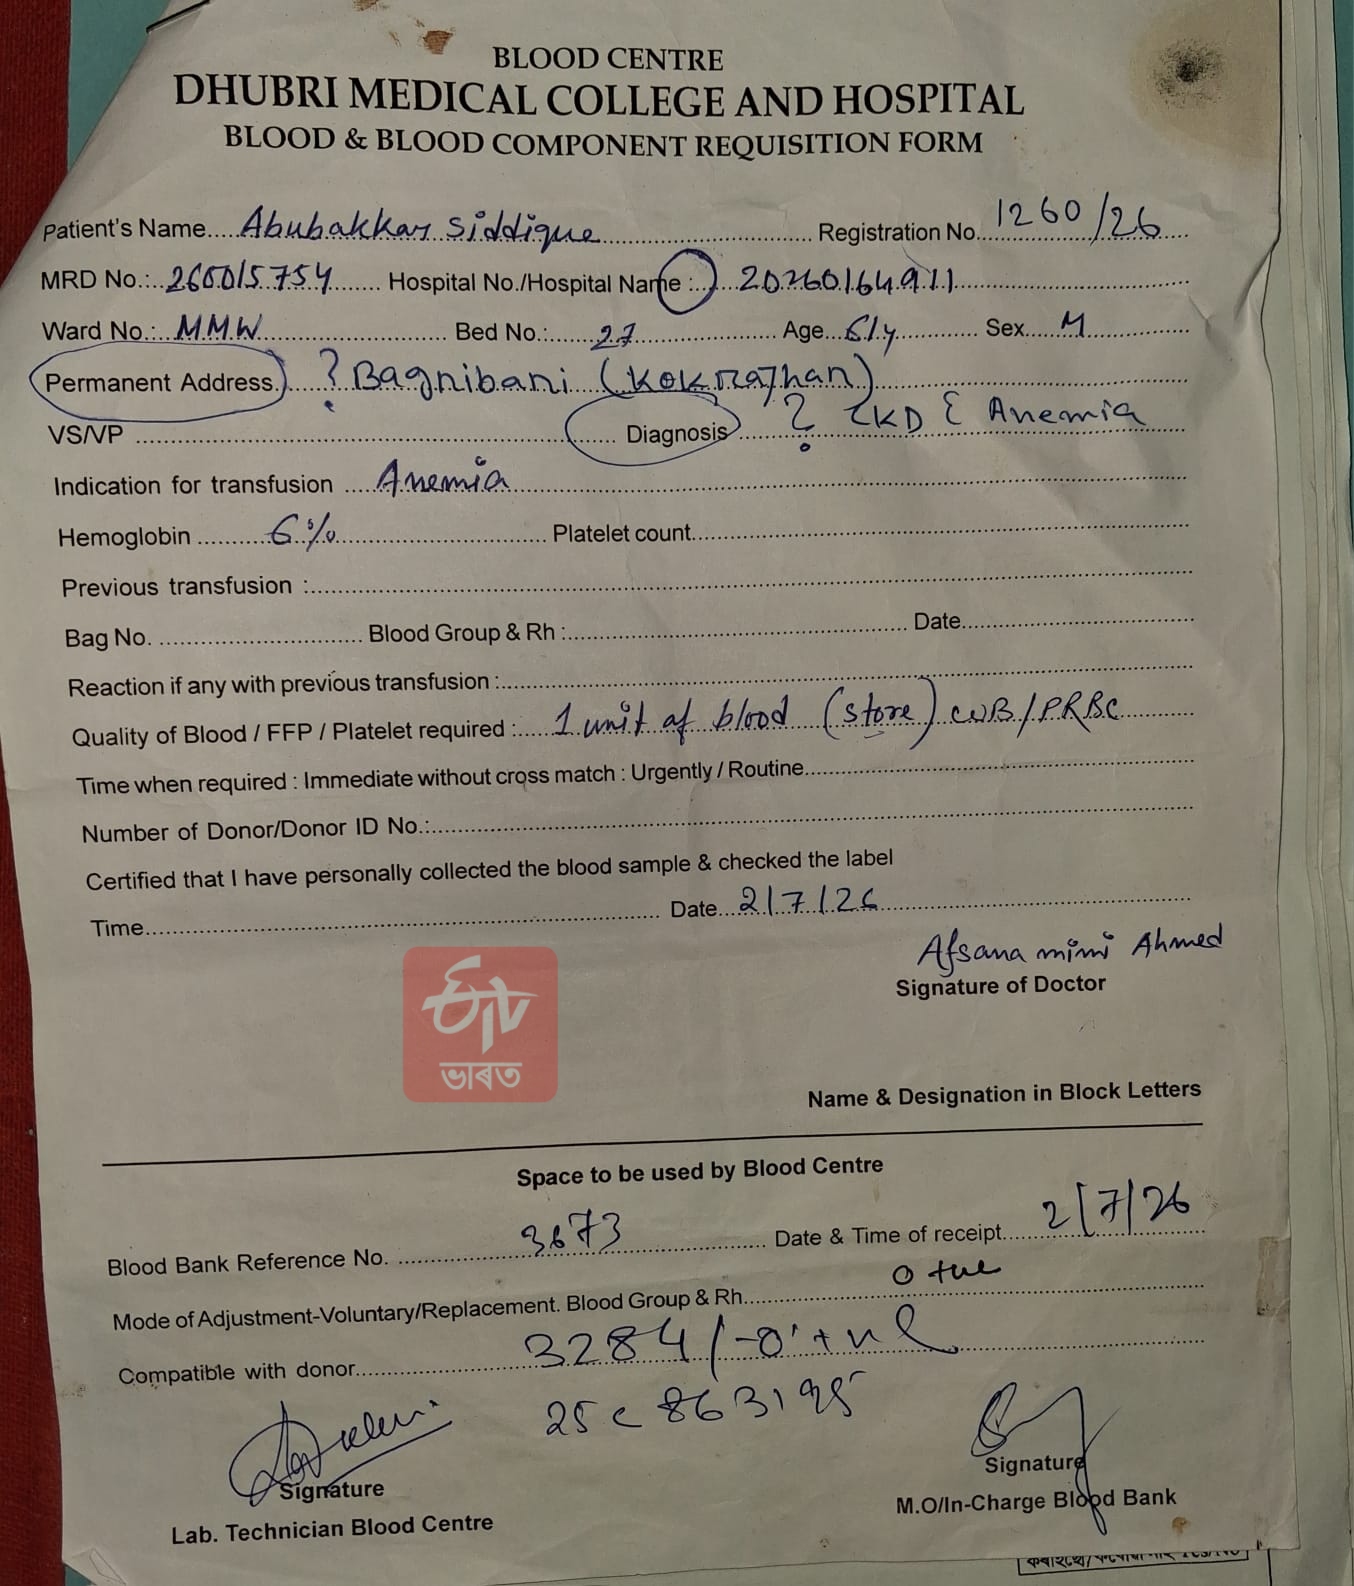 BLOOD CENTRE
DHUBRI MEDICAL COLLEGE AND HOSPITAL
BLOOD & BLOOD COMPONENT REQUISITION FORM
Patient's Name....Abubakkar Siddique.... Registration No....1260/26
MRD No.:..260015754.... Hospital No./Hospital Name :....20260164911....
Ward No.: MMW.... Bed No.:....27.... Age....61y.... Sex....M....
Permanent Address....? Bagnibari (Kokrajhar)....
VS/VP .... Diagnosis....? CKD & Anemia
Indication for transfusion ....Anemia....
Hemoglobin ....6%.... Platelet count....
Previous transfusion :....
Bag No. .... Blood Group & Rh :.... Date....
Reaction if any with previous transfusion :....
Quality of Blood / FFP / Platelet required :....1 unit of blood (store) WB/PRBC
Time when required : Immediate without cross match : Urgently / Routine....
Number of Donor/Donor ID No.:....
Certified that I have personally collected the blood sample & checked the label
Time.... Date...2/7/26....
Afsana mimi Ahmed
Signature of Doctor
etv
ভাৰত
Name & Designation in Block Letters
Space to be used by Blood Centre
Blood Bank Reference No. ....3673.... Date & Time of receipt....2/7/26
Mode of Adjustment-Voluntary/Replacement. Blood Group & Rh....O +ve
Compatible with donor....3284/-O'+ve
25 c 863195
Signature
Signature
Lab. Technician Blood Centre
M.O/In-Charge Blood Bank